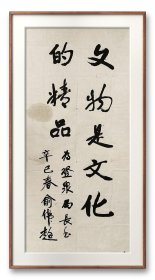 文物是文化
的精品
泉局長
辛巳春 俞伟超